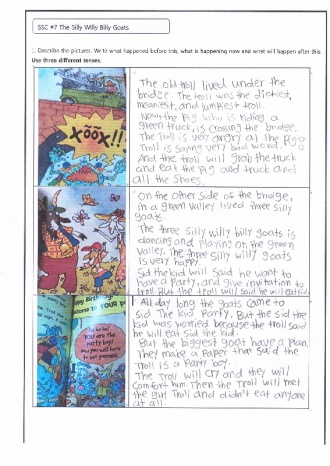 SSC #7 The Silly Willy Billy Goats
1. Describe the pictures. Write what happened before this, what is happening now and what will happen after this.
Use three different tenses.
XÖÖX!!
The old troll lived under the
bridge. The troll was the dirtiest,
meanest, and lumpiest troll.
Now the Pig who is riding a
green truck, is crossing the bridge.
The Troll is very angry at the pig
Troll is saying very bad word.
And the troll will grab the truck
and eat the pig and truck and
all the shoes.
On the other side of the bridge,
in a green valley lived three silly
goats.
The three silly willy billy goats is
dancing and Playing on the green
Valley. The three silly willy goats
is very happy.
Sid the kid will said he want to
have a Party, and give invitation to
troll But the troll will said he will eat
All day long the goats came to
Sid The kid Party. But the Sid the
kid was worried because the troll said
he will eat Sid the kid.
But the biggest goat have a Plan,
They make a Paper that said the
Troll is a Party boy.
The Troll will cry and they will
comfort him. Then the Troll will met
the girl Troll and didn't eat anyone
at all.
You are the
party boy!